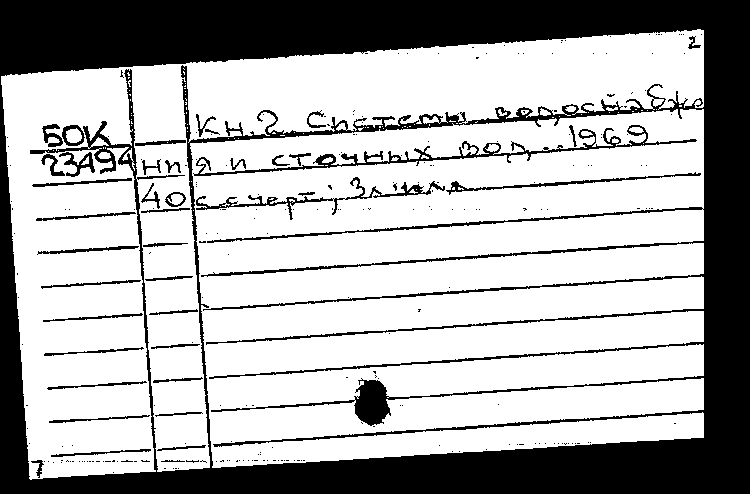 2
Кн. 2. Системы водоснабже
БОК
23494 ния и сточных вод... 1969
40 с с черт; 3 л илл
7